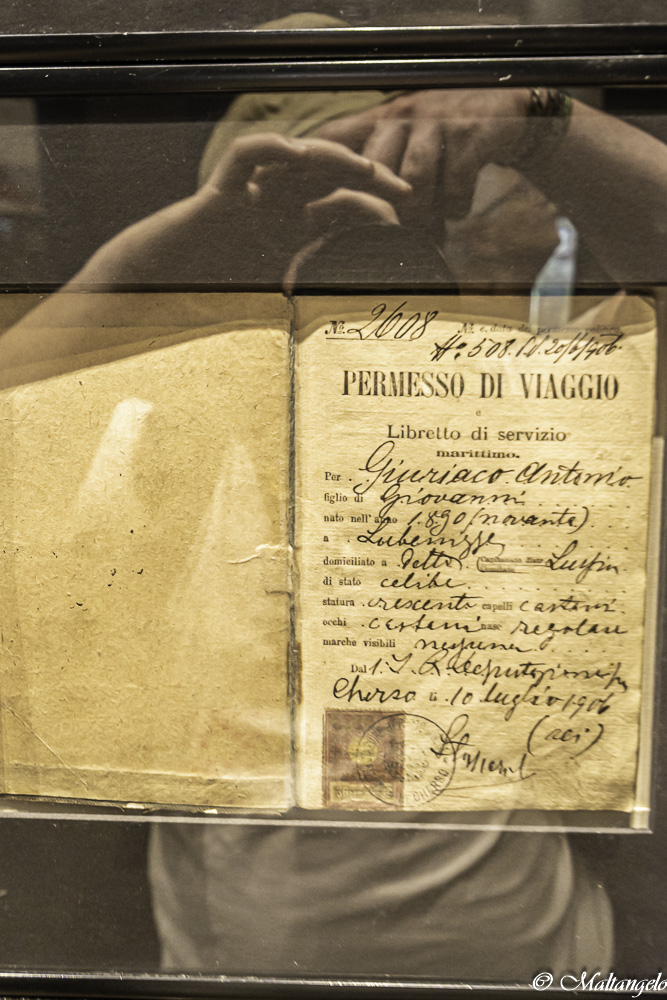 No. 2608
No. e data del
No. 508. Pd. 20/6/906.
PERMESSO DI VIAGGIO
e
Libretto di servizio
marittimo.
Per Giuriaco Antonio
figlio di Giovanni
nato nell'anno 1890 (novanta)
a Lubenizze
domiciliato a detto Lussin
di stato celibe.
statura crescente capelli castani.
occhi castani naso regolare
marche visibili nessuna
Dall' I. R. deputazione
Cherso li 10 luglio 1906
(sei)
CHERSO
© Maltangelo